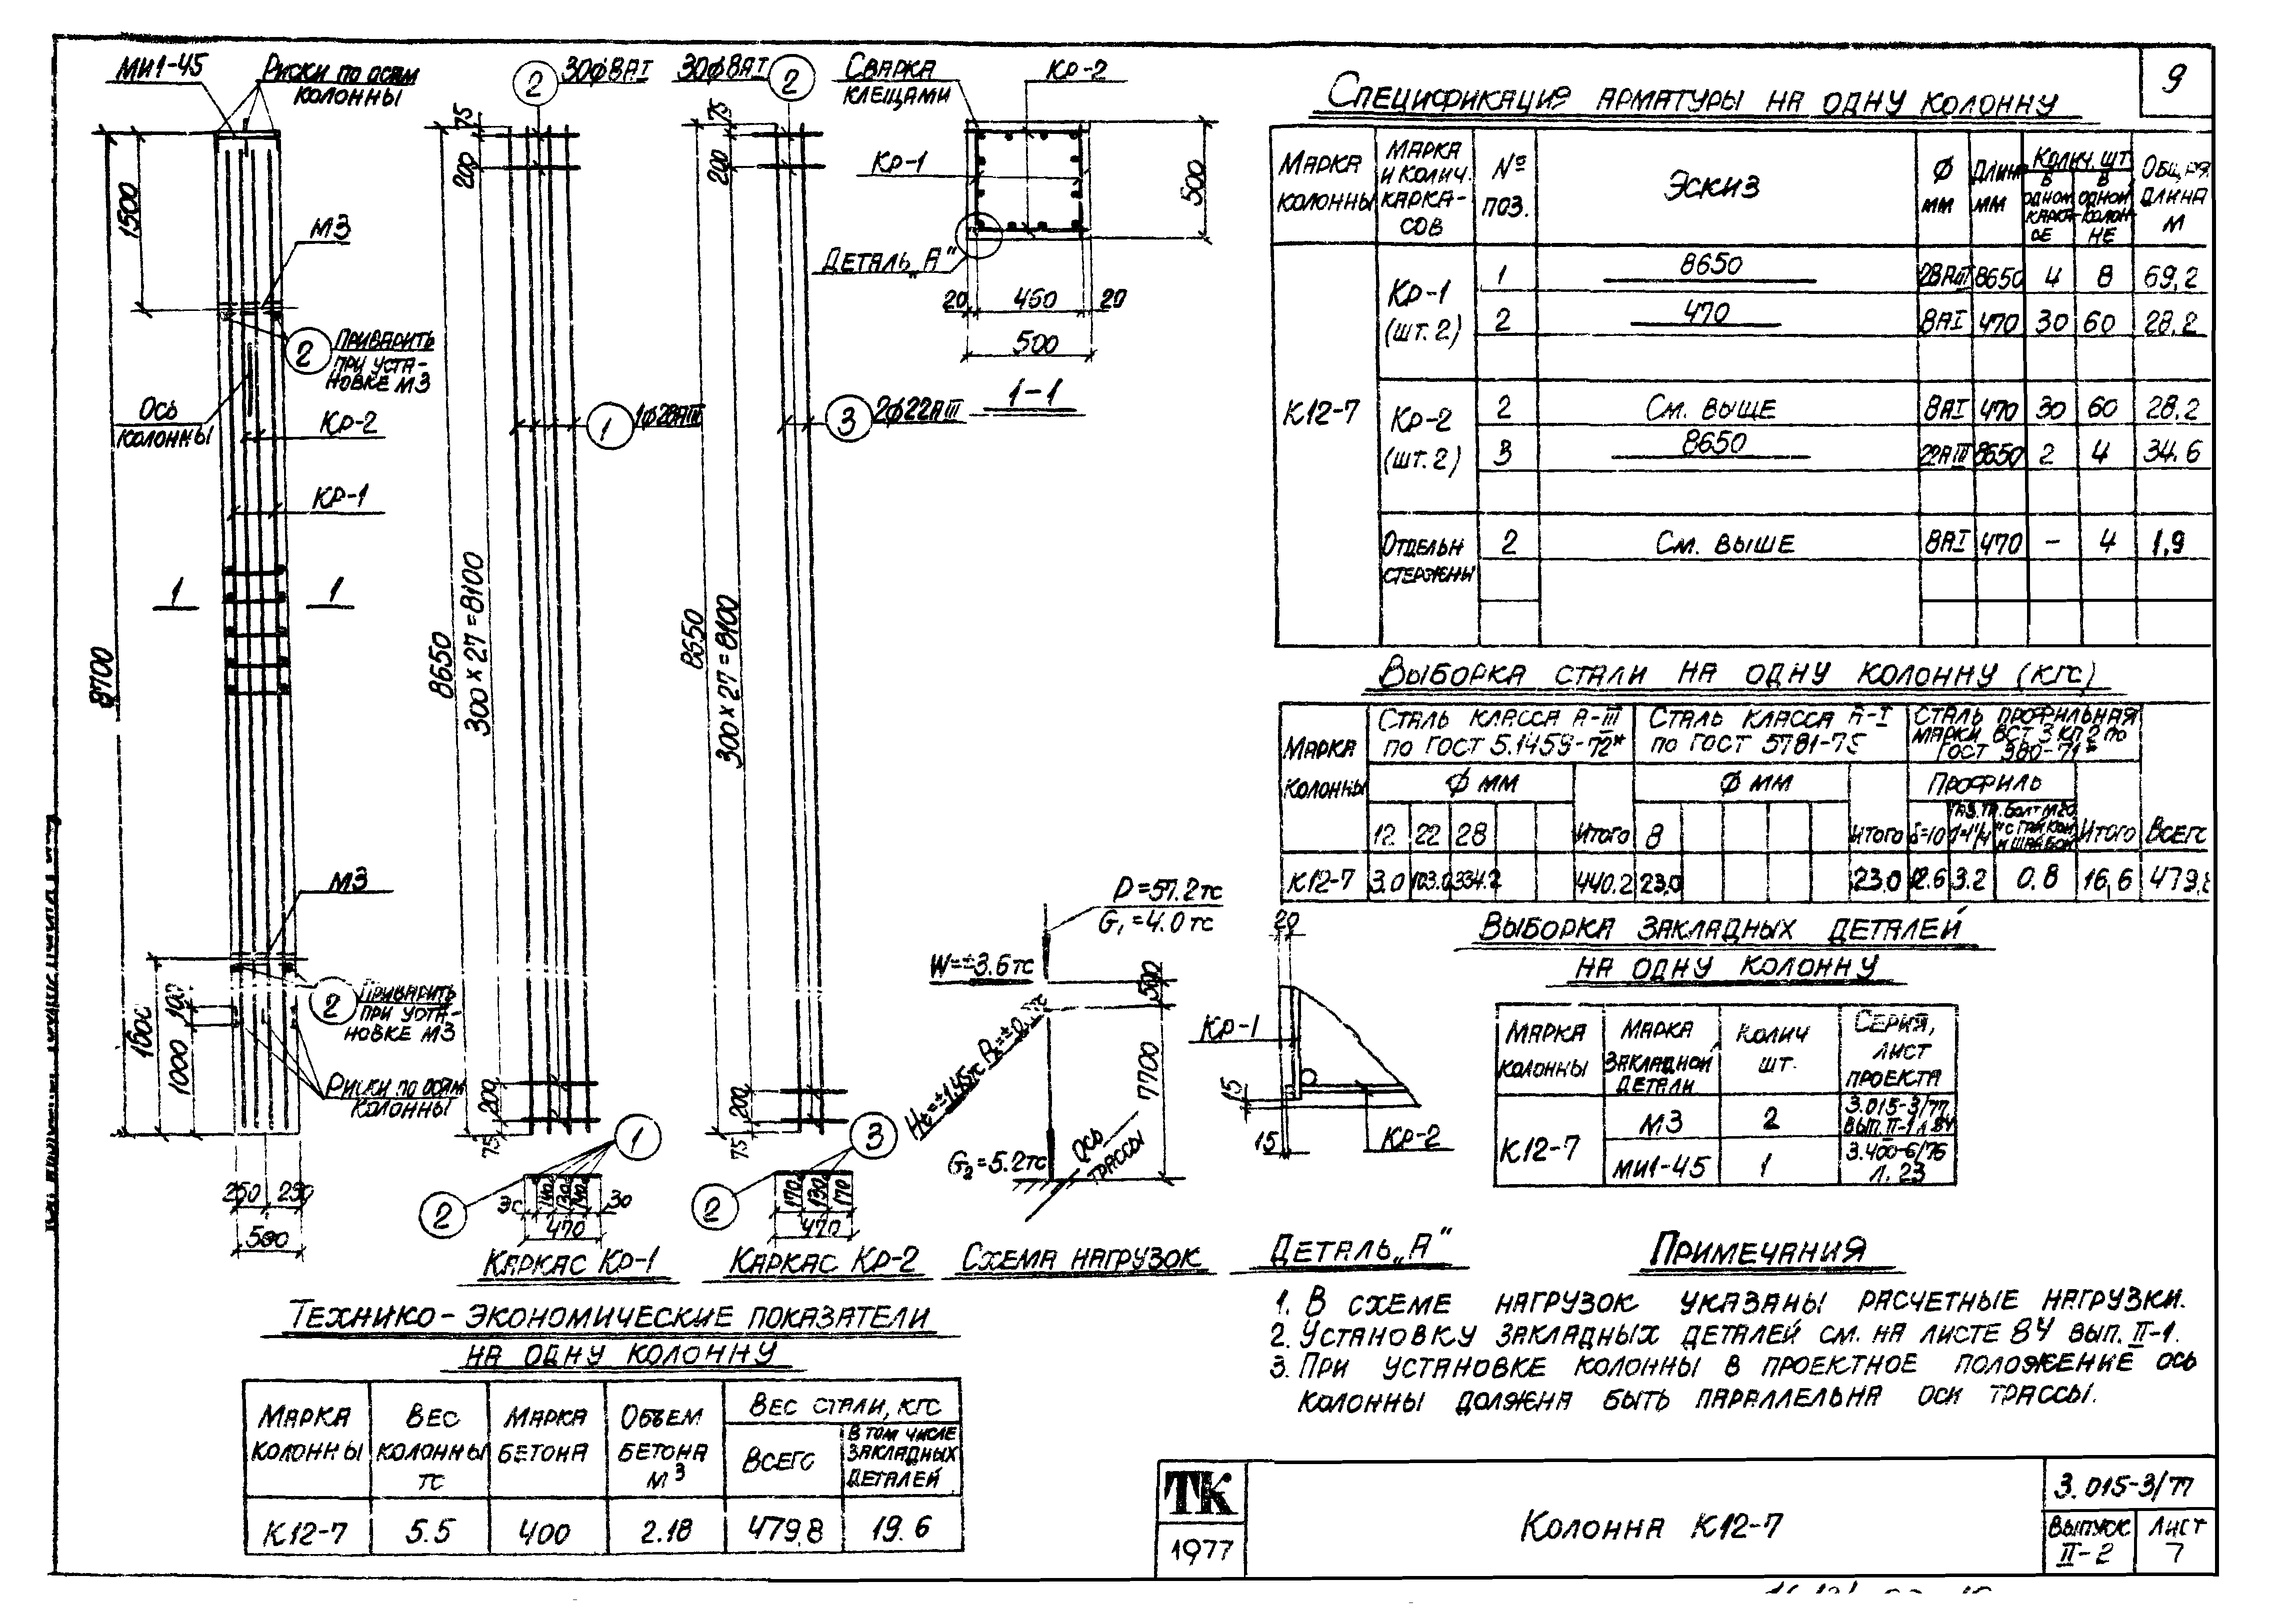 9
МИ1-45
Риски по осям
колонны
1500
М3
2
Приварить
при уста-
новке М3
Ось
колонны
Кр-2
Кр-1
1
1
8700
М3
2
Приварить
при уста-
новке М3
1600
100
1000
Риски по осям
колонны
250
250
500
2
30ф8АI
75
200
8650
300×27=8100
1
1ф28АIII
200
75
1
2
30
140
130
140
30
470
Каркас Кр-1
30ф8АI
2
75
200
8650
300×27=8100
3
2ф22АIII
200
75
3
2
170
130
170
470
Каркас Кр-2
Сварка
клещами
Кр-2
Кр-1
500
Деталь „А"
20
460
20
500
1-1
P=57.2тс
G₁=4.0тс
W=±3.6тс
500
7700
G₂=5.2тс
Ось
трассы
Схема нагрузок
20
Кр-1
15
15
Кр-2
Деталь „А"
Спецификация арматуры на одну колонну
Марка колонны
Марка и колич. каркасов
№ поз.
Эскиз
ф мм
Длина мм
Колич. шт
в одном каркасе
в одной колонне
Общая длина м
К12-7
Кр-1 (шт. 2)
1 8650 28АIII 8650 4 8 69,2
2 470 8АI 470 30 60 28.2
Кр-2 (шт. 2)
2 См. выше 8АI 470 30 60 28.2
3 8650 22АIII 8650 2 4 34.6
Отдельн стержни
2 См. выше 8АI 470 - 4 1,9
Выборка стали на одну колонну (кгс)
Марка колонны
Сталь класса А-III
по ГОСТ 5.1459-72*
Сталь класса А-I
по ГОСТ 5781-75
Сталь профильная
марки ВСт 3 кп 2 по
ГОСТ 380-71*
ф мм
ф мм
Профиль
12 22 28 Итого 8 Итого δ=10
Болт М20
с гайкой
и шайбой
Итого Всего
К12-7 3.0 103.0 334.2 440.2 23,0 23,0 12.6 3.2 0.8 16,6 479,8
Выборка закладных деталей
на одну колонну
Марка колонны
Марка закладной детали
Колич шт.
Серия, лист проекта
К12-7
М3 2 3.015-3/77, вып. II-1 л. 84
МИ1-45 1 3.400-6/76 л. 23
Примечания
1. В схеме нагрузок указаны расчетные нагрузки.
2. Установку закладных деталей см. на листе 84 вып. II-1.
3. При установке колонны в проектное положение ось
колонны должна быть параллельна оси трассы.
Технико-экономические показатели
на одну колонну
Марка колонны
Вес колонны тс
Марка бетона
Объем бетона м³
Вес стали, кгс
Всего
В том числе закладных деталей
К12-7 5.5 400 2.18 479,8 19.6
ТК
1977
Колонна К12-7
3.015-3/77
Выпуск
II-2
Лист
7